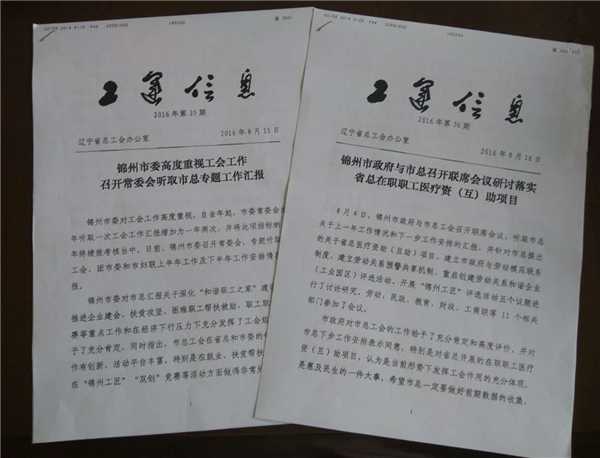 工运信息
2016年第35期
辽宁省总工会办公室
2016年8月15日
锦州市委高度重视工会工作
召开常委会听取市总专题工作汇报
锦州市委对工会工作高度重视，自去年起，市委常委会
年听取一次工会工作汇报增加为一年两次，并将此项目标
年终绩效考核当中。日前，锦州市委召开常委会，专题听取
工会、团市委和市妇联上半年工作及下半年工作安排情
锦州市委对市总汇报关于深化“和谐职工之家”建
推进企业建会、扶贫攻坚、困难职工帮扶救助、职工
赛等重点工作和在经济下行压力下充分发挥了工会
予了充分肯定。同时指出，市总工会在省总和市委的
作有创新、活动平台丰富，特别是在就业、扶贫帮
在“锦州工匠”“双创”竞赛等活动方面做得非常
工运信息
2016年第36期
辽宁省总工会办公室
2016年8月16日
锦州市政府与市总召开联席会议研讨落实
省总在职职工医疗资（互）助项目
8月4日，锦州市政府与市总工会召开联席会议，听取市总
关于上一年工作情况和下一步工作安排的汇报，并针对市总提出
的关于省总医疗资助（互助）项目、建立市政府与劳动模范联系
制度、建立劳动关系预警共享机制、重启创建劳动关系和谐企业
（工业园区）评选活动、开展“锦州工匠”评选活动五个议题进
行了讨论研究，劳动、民政、教育、财政、工商联等11个相关
部门参加了会议。
市政府对市总工会的工作给予了充分肯定和高度评价，并对
市总下步工作安排表示同意，特别是对省总开展的在职职工医疗
资（互）助项目，认为是当前形势下发挥工会作用的充分体现，
是惠及民生的一件大事，希望市总一定要做好前期数据的收集、